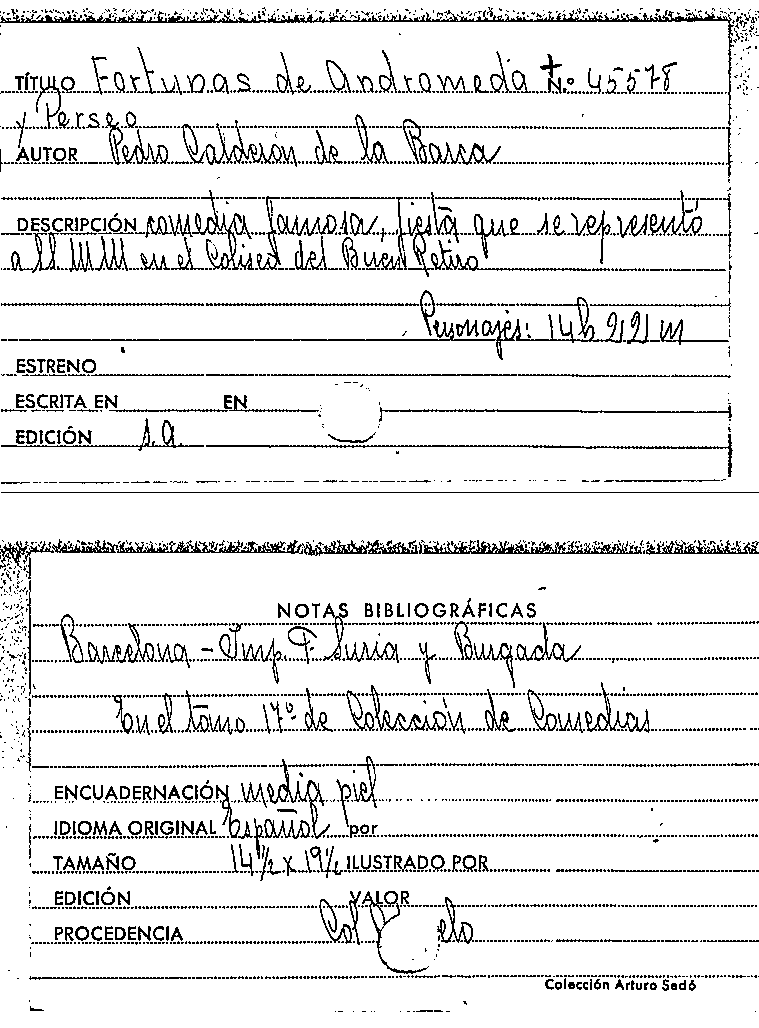 TÍTULO Fortunas de Andromeda + N.º 45578
y Perseo
AUTOR Pedro Calderón de la Barca
DESCRIPCIÓN comedia famosa, fiesta que se representó
a SS MM en el Coliseo del Buen Retiro
Personajes: 14h 22 m
ESTRENO
ESCRITA EN EN
EDICIÓN s.a.
NOTAS BIBLIOGRÁFICAS
Barcelona - Imp. F. Suria y Burgada
En el tomo 17º de Colección de Comedias
ENCUADERNACIÓN media piel
IDIOMA ORIGINAL Español por
TAMAÑO 14½ x 19½ ILUSTRADO POR
EDICIÓN VALOR
PROCEDENCIA Col
Colección Arturo Sedó